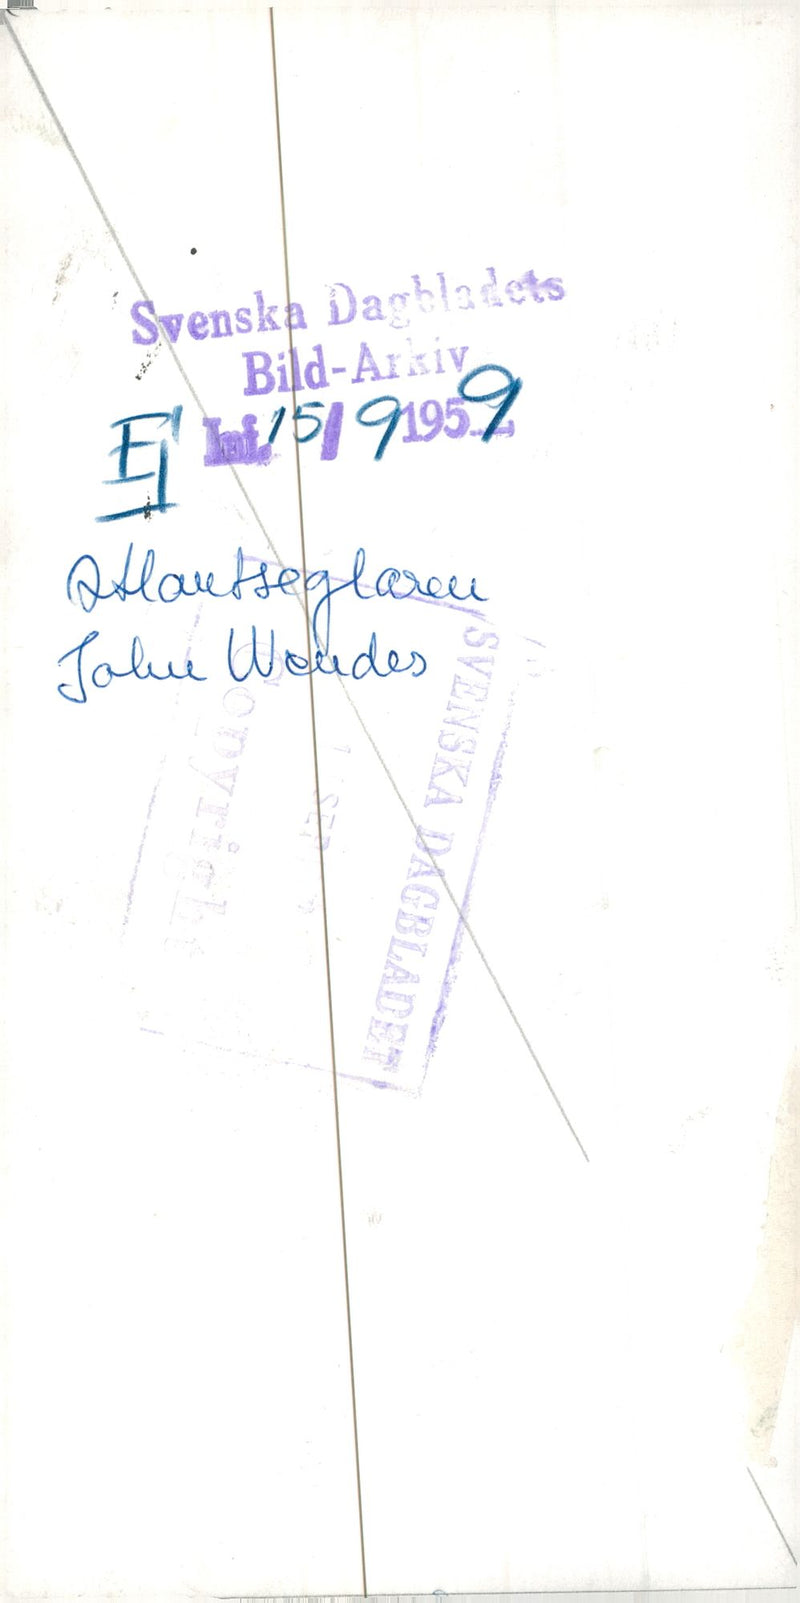 Svenska Dagbladets
Bild-Arkiv
Ej
Inf. 15/9 1959
Atlantseglaren
John Wendes
SVENSKA DAGBLADET
SEP
Copyright